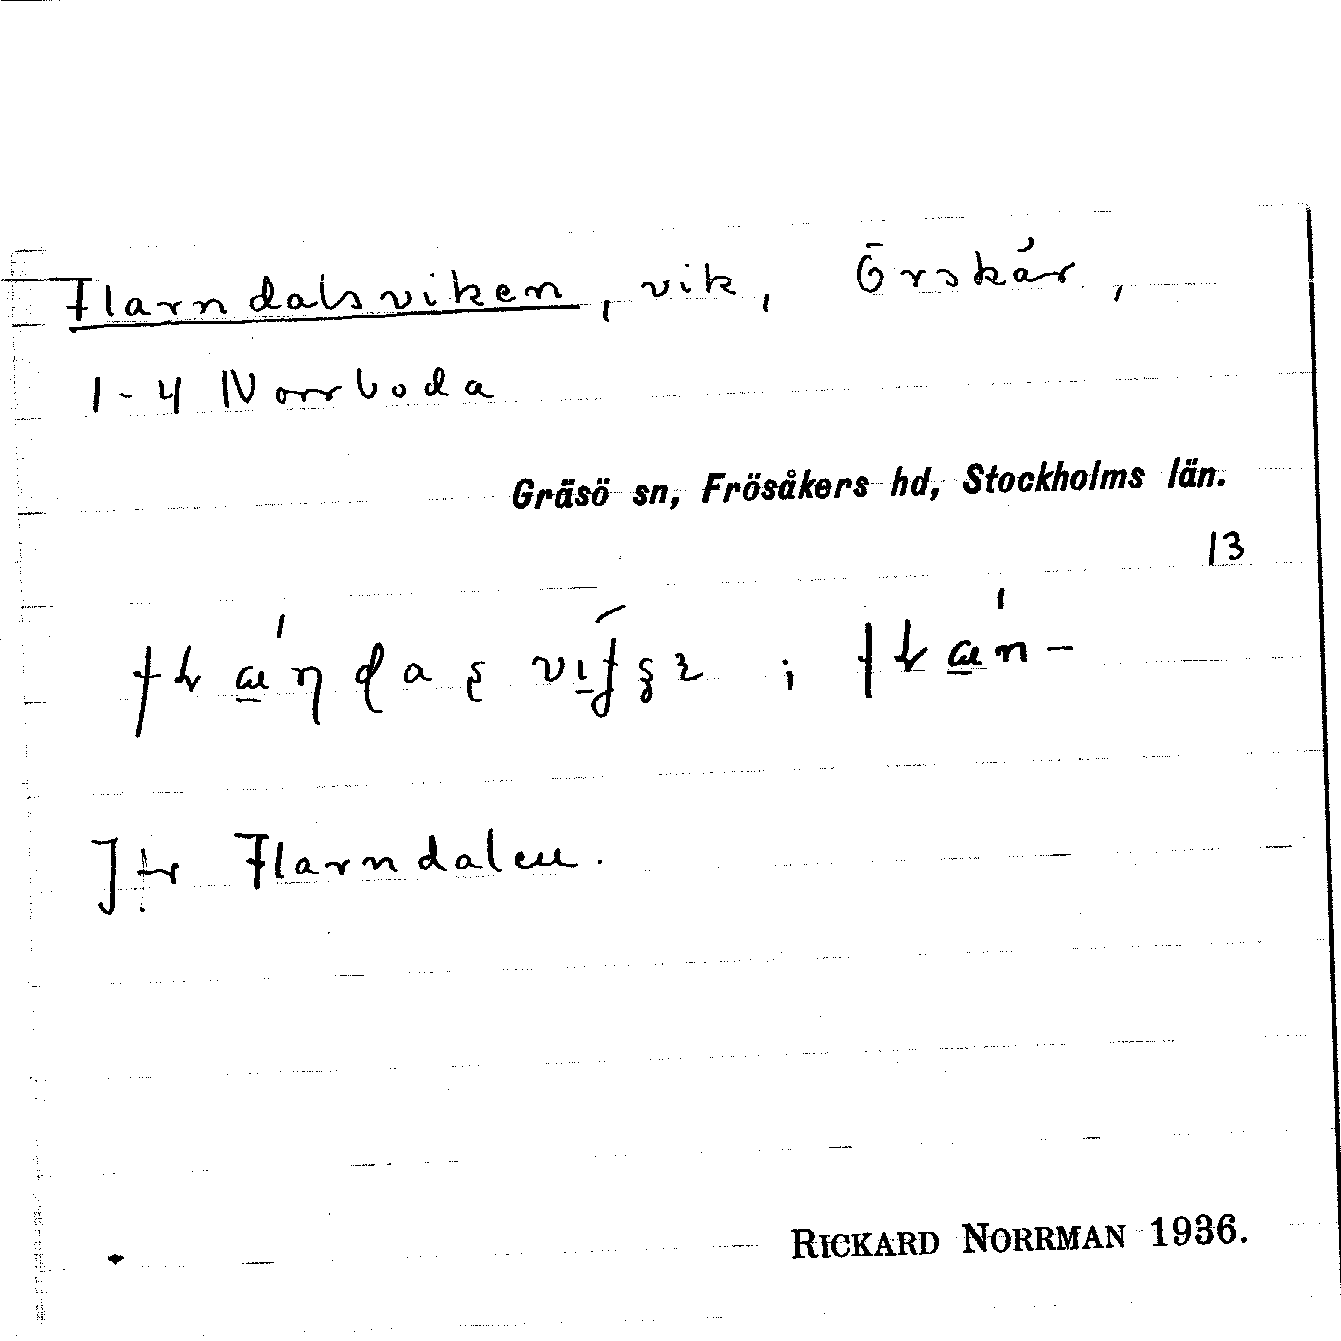 Flarndalsviken, vik, Örskär,
1-4 Norrboda
Gräsö sn, Frösåkers hd, Stockholms län.
13
Jfr Flarndalen.
RICKARD NORRMAN 1936.